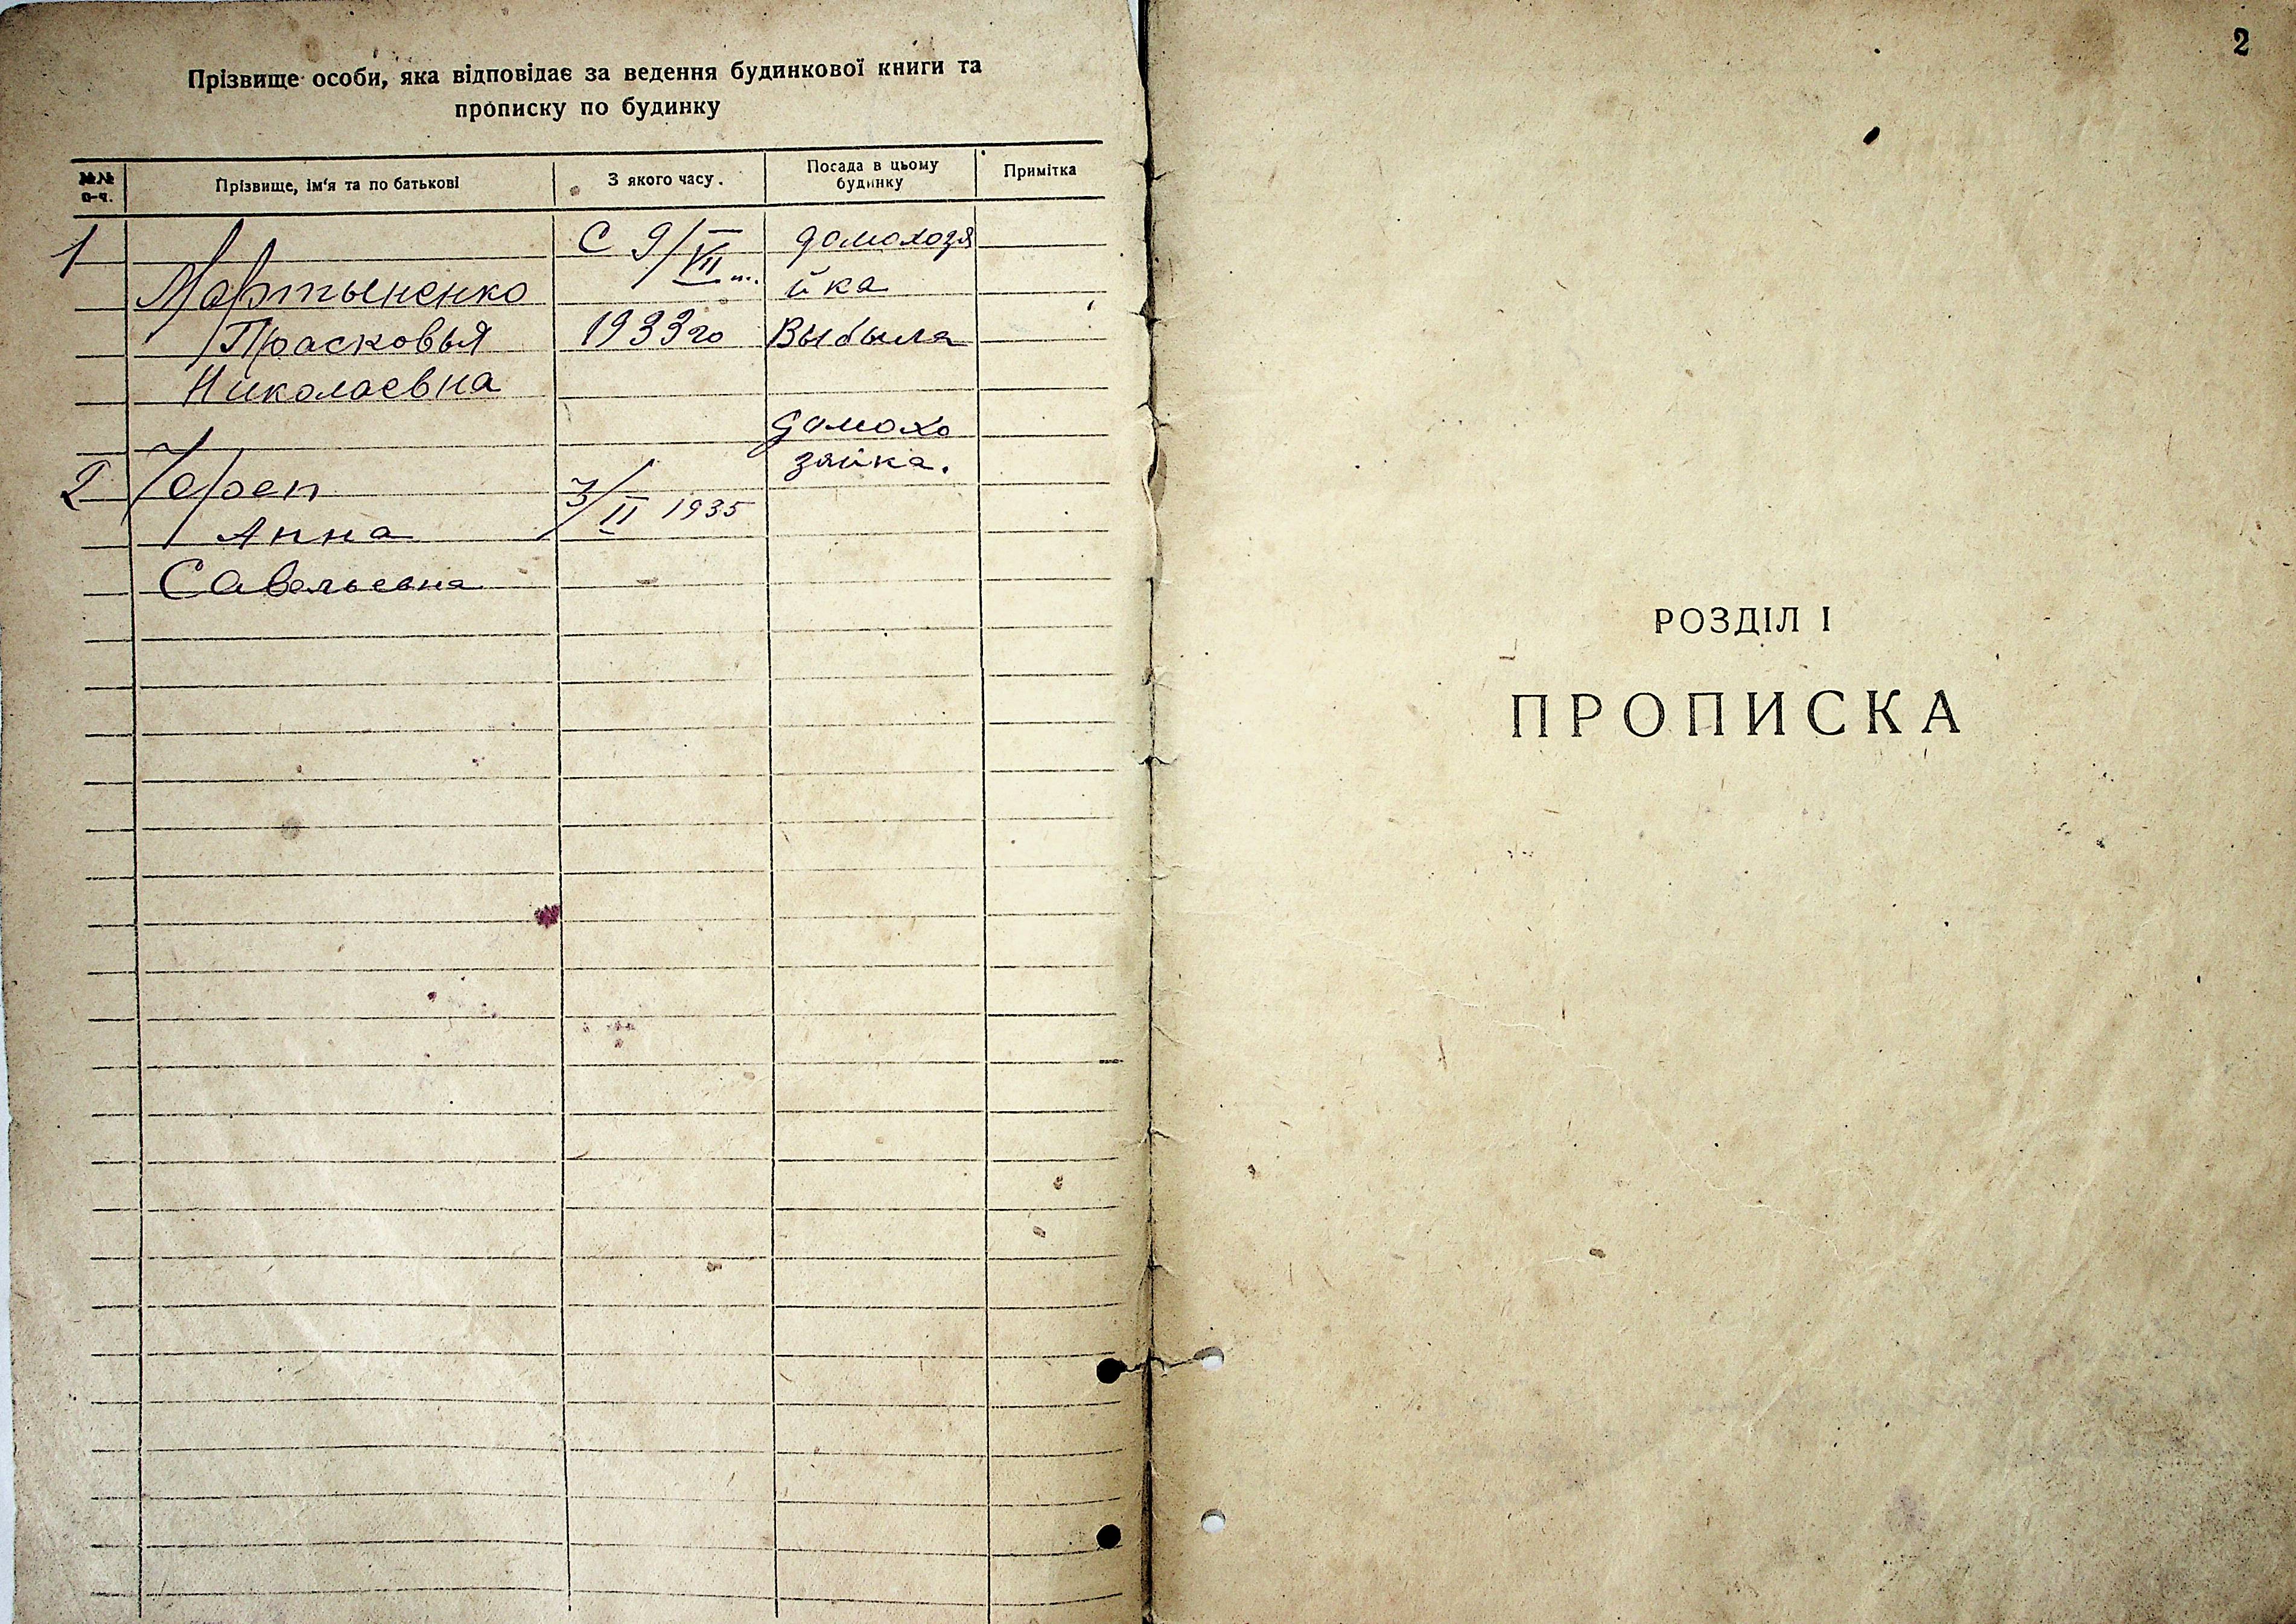 Прізвище особи, яка відповідає за ведення будинкової книги та
прописку по будинку
№№ п-ч.
Прізвище, ім'я та по батькові
З якого часу.
Посада в цьому будинку
Примітка
1
Мартыненко
Прасковья
Николаевна
С 9/VII
1933го
домохозя
йка
Выбыла
2
Анна
Савельевна
3/II 1935
домохо
зяйка.
2
РОЗДІЛ І
ПРОПИСКА